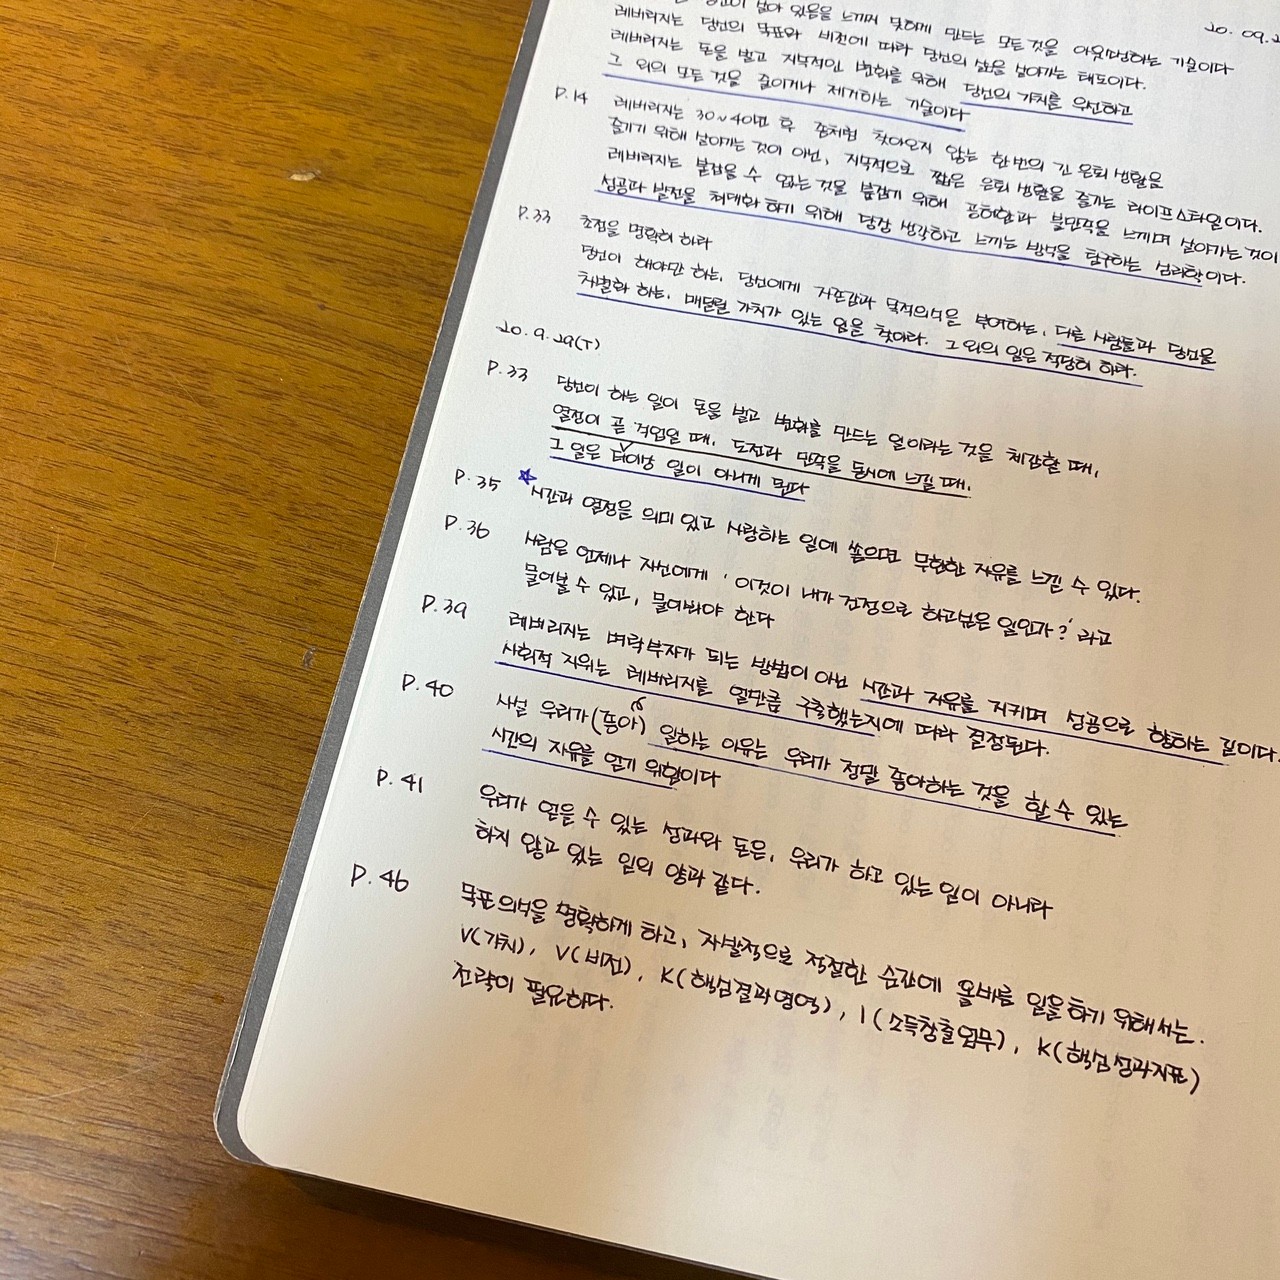 살아 있음을 느끼며 못하게 만드는 모든 것을 아웃소싱하는 기술이다
20. 09. 2
레버리지는 당신의 목표와 비전에 따라 당신의 삶을 살아가는 태도이다.
레버리지는 돈을 벌고 지속적인 변화를 위해 당신의 가치를 우선하고
그 외의 모든 것을 줄이거나 제거하는 기술이다
P.14 레버리지는 30~40년 후 좀처럼 찾아오지 않는 한 번의 긴 은퇴 생활을
즐기기 위해 살아가는 것이 아닌, 지속적으로 짧은 은퇴 생활을 즐기는 라이프스타일이다.
레버리지는 붙잡을 수 없는 것을 붙잡기 위해 공허함과 불만족을 느끼며 살아가는 것이
성공과 발전을 최대화 하기 위해 당장 생각하고 느끼는 방식을 탐구하는 심리학이다.
P.33 초점을 명확히 하라
당신이 해야만 하는, 당신에게 자존감과 목적의식을 부여하는, 다른 사람들과 당신을
차별화 하는, 매달릴 가치가 있는 일을 찾아라. 그 외의 일은 적당히 하라.
20. 9. 29(T)
P.33 당신이 하는 일이 돈을 벌고 변화를 만드는 일이라는 것을 체감할 때,
열정이 곧 직업일 때, 도전과 만족을 동시에 느낄 때,
그 일은 더이상 일이 아니게 된다
P.35 ☆시간과 열정을 의미 있고 사랑하는 일에 쏟으면 무한한 자유를 느낄 수 있다.
P.36 사람은 언제나 자신에게 '이것이 내가 진정으로 하고싶은 일인가?' 라고
물어볼 수 있고, 물어봐야 한다
P.39 레버리지는 벼락부자가 되는 방법이 아닌 시간과 자유를 지키며 성공으로 향하는 길이다.
사회적 지위는 레버리지를 얼만큼 구축했는지에 따라 결정된다.
P.40 사실 우리가(좋아) 일하는 이유는 우리가 정말 좋아하는 것을 할 수 있는
시간의 자유를 얻기 위함이다
P.41 우리가 얻을 수 있는 성과와 돈은, 우리가 하고 있는 일이 아니다
하지 않고 있는 일의 양과 같다.
P.46 목표 의식을 명확하게 하고, 자발적으로 적절한 순간에 올바른 일을 하기 위해서는.
V(가치), V(비전), K(핵심결과영역), I(소득창출업무), K(핵심성과지표)
전략이 필요하다.